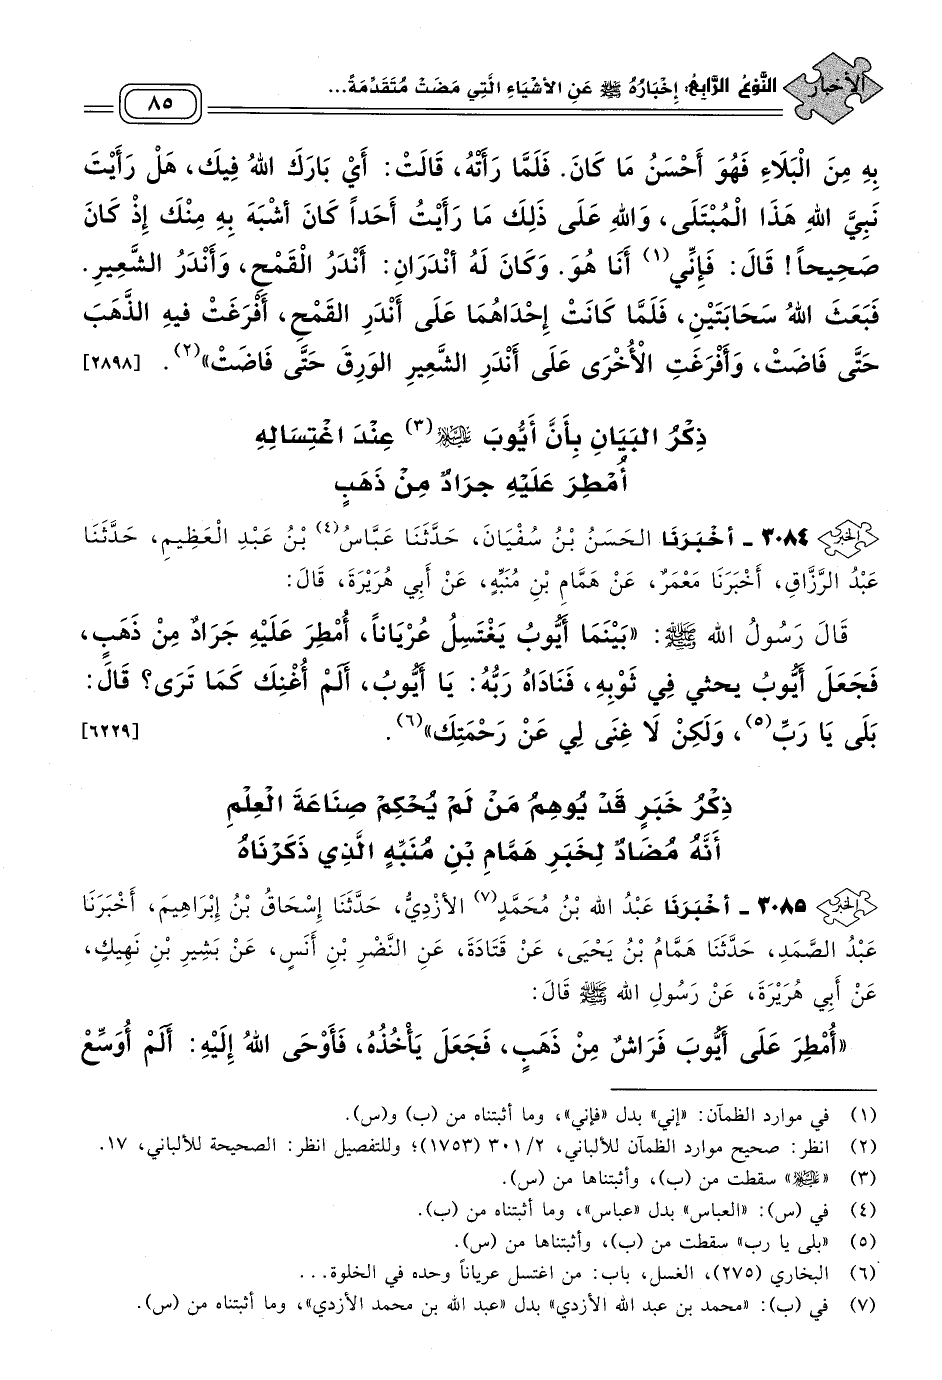 الأخبار
النَّوْعُ الرَّابِعُ: إِخْبَارُهُ ﷺ عَنِ الأَشْيَاءِ الَّتِي مَضَتْ مُتَقَدِّمَةً...
٨٥
بِهِ مِنَ الْبَلَاءِ فَهُوَ أَحْسَنُ مَا كَانَ. فَلَمَّا رَأَتْهُ، قَالَتْ: أَيْ بَارَكَ اللهُ فِيكَ، هَلْ رَأَيْتَ
نَبِيَّ اللهِ هَذَا الْمُبْتَلَى، وَاللهِ عَلَى ذَلِكَ مَا رَأَيْتُ أَحَداً كَانَ أَشْبَهَ بِهِ مِنْكَ إِذْ كَانَ
صَحِيحاً! قَالَ: فَإِنِّي(١) أَنَا هُوَ. وَكَانَ لَهُ أَنْدَرَانِ: أَنْدَرُ الْقَمْحِ، وَأَنْدَرُ الشَّعِيرِ.
فَبَعَثَ اللهُ سَحَابَتَيْنِ، فَلَمَّا كَانَتْ إِحْدَاهُمَا عَلَى أَنْدَرِ القَمْحِ، أَفْرَغَتْ فيهِ الذَّهَبَ
حَتَّى فَاضَتْ، وَأَفْرَغَتِ الْأُخْرَى عَلَى أَنْدَرِ الشَّعيرِ الوَرِقَ حَتَّى فَاضَتْ»(٢). [٢٨٩٨]
ذِكْرُ البَيَانِ بِأَنَّ أَيُّوبَ ﵇(٣) عِنْدَ اغْتِسَالِهِ
أُمْطِرَ عَلَيْهِ جرَادٌ مِنْ ذَهَبٍ
الخبر ٣٠٨٤ - أَخْبَرَنَا الحَسَنُ بْنُ سُفْيَانَ، حَدَّثَنَا عَبَّاسُ(٤) بْنُ عَبْدِ الْعَظِيمِ، حَدَّثَنَا
عَبْدُ الرَّزَّاقِ، أَخْبَرَنَا مَعْمَرٌ، عَنْ هَمَّامِ بْنِ مُنَبِّهٍ، عَنْ أَبِي هُرَيْرَةَ، قَالَ:
قَالَ رَسُولُ اللهِ ﷺ: «بَيْنَمَا أَيُّوبُ يَغْتَسِلُ عُرْيَاناً، أُمْطِرَ عَلَيْهِ جَرَادٌ مِنْ ذَهَبٍ،
فَجَعَلَ أَيُّوبُ يحثي فِي ثَوْبِهِ، فَنَادَاهُ رَبُّهُ: يَا أَيُّوبُ، أَلَمْ أُغْنِكَ كَمَا تَرَى؟ قَالَ:
بَلَى يَا رَبِّ(٥)، وَلَكِنْ لَا غِنَى لِي عَنْ رَحْمَتِكَ»(٦). [٦٢٢٩]
ذِكْرُ خَبَرٍ قَدْ يُوهِمُ مَنْ لَمْ يُحْكِمْ صِنَاعَةَ الْعِلْمِ
أَنَّهُ مُضَادٌ لِخَبَرِ هَمَّامِ بْنِ مُنَبِّهِ الَّذِي ذَكَرْنَاهُ
الخبر ٣٠٨٥ - أَخْبَرَنَا عَبْدُ اللهِ بْنُ مُحَمَّدٍ(٧) الأَزْدِيُّ، حَدَّثَنَا إِسْحَاقُ بْنُ إِبْرَاهِيمَ، أَخْبَرَنَا
عَبْدُ الصَّمَدِ، حَدَّثَنَا هَمَّامُ بْنُ يَحْيَى، عَنْ قَتَادَةَ، عَنِ النَّضْرِ بْنِ أَنَسٍ، عَنْ بَشِيرِ بْنِ نَهِيكٍ،
عَنْ أَبِي هُرَيْرَةَ، عَنْ رَسُولِ اللهِ ﷺ قَالَ:
«أُمْطِرَ عَلَى أَيُّوبَ فَرَاشٌ مِنْ ذَهَبٍ، فَجَعَلَ يَأْخُذُهُ، فَأَوْحَى اللهُ إِلَيْهِ: أَلَمْ أُوَسِّعْ
(١) في موارد الظمآن: «إني» بدل «فإني»، وما أثبتناه من (ب) و(س).
(٢) انظر: صحيح موارد الظمآن للألباني، ٣٠١/٢ (١٧٥٣)؛ وللتفصيل انظر: الصحيحة للألباني، ١٧.
(٣) «﵇» سقطت من (ب)، وأثبتناها من (س).
(٤) في (س): «العباس» بدل «عباس»، وما أثبتناه من (ب).
(٥) «بلى يا رب» سقطت من (ب)، وأثبتناها من (س).
(٦) البخاري (٢٧٥)، الغسل، باب: من اغتسل عرياناً وحده في الخلوة...
(٧) في (ب): «محمد بن عبد الله الأزدي» بدل «عبد الله بن محمد الأزدي»، وما أثبتناه من (س).